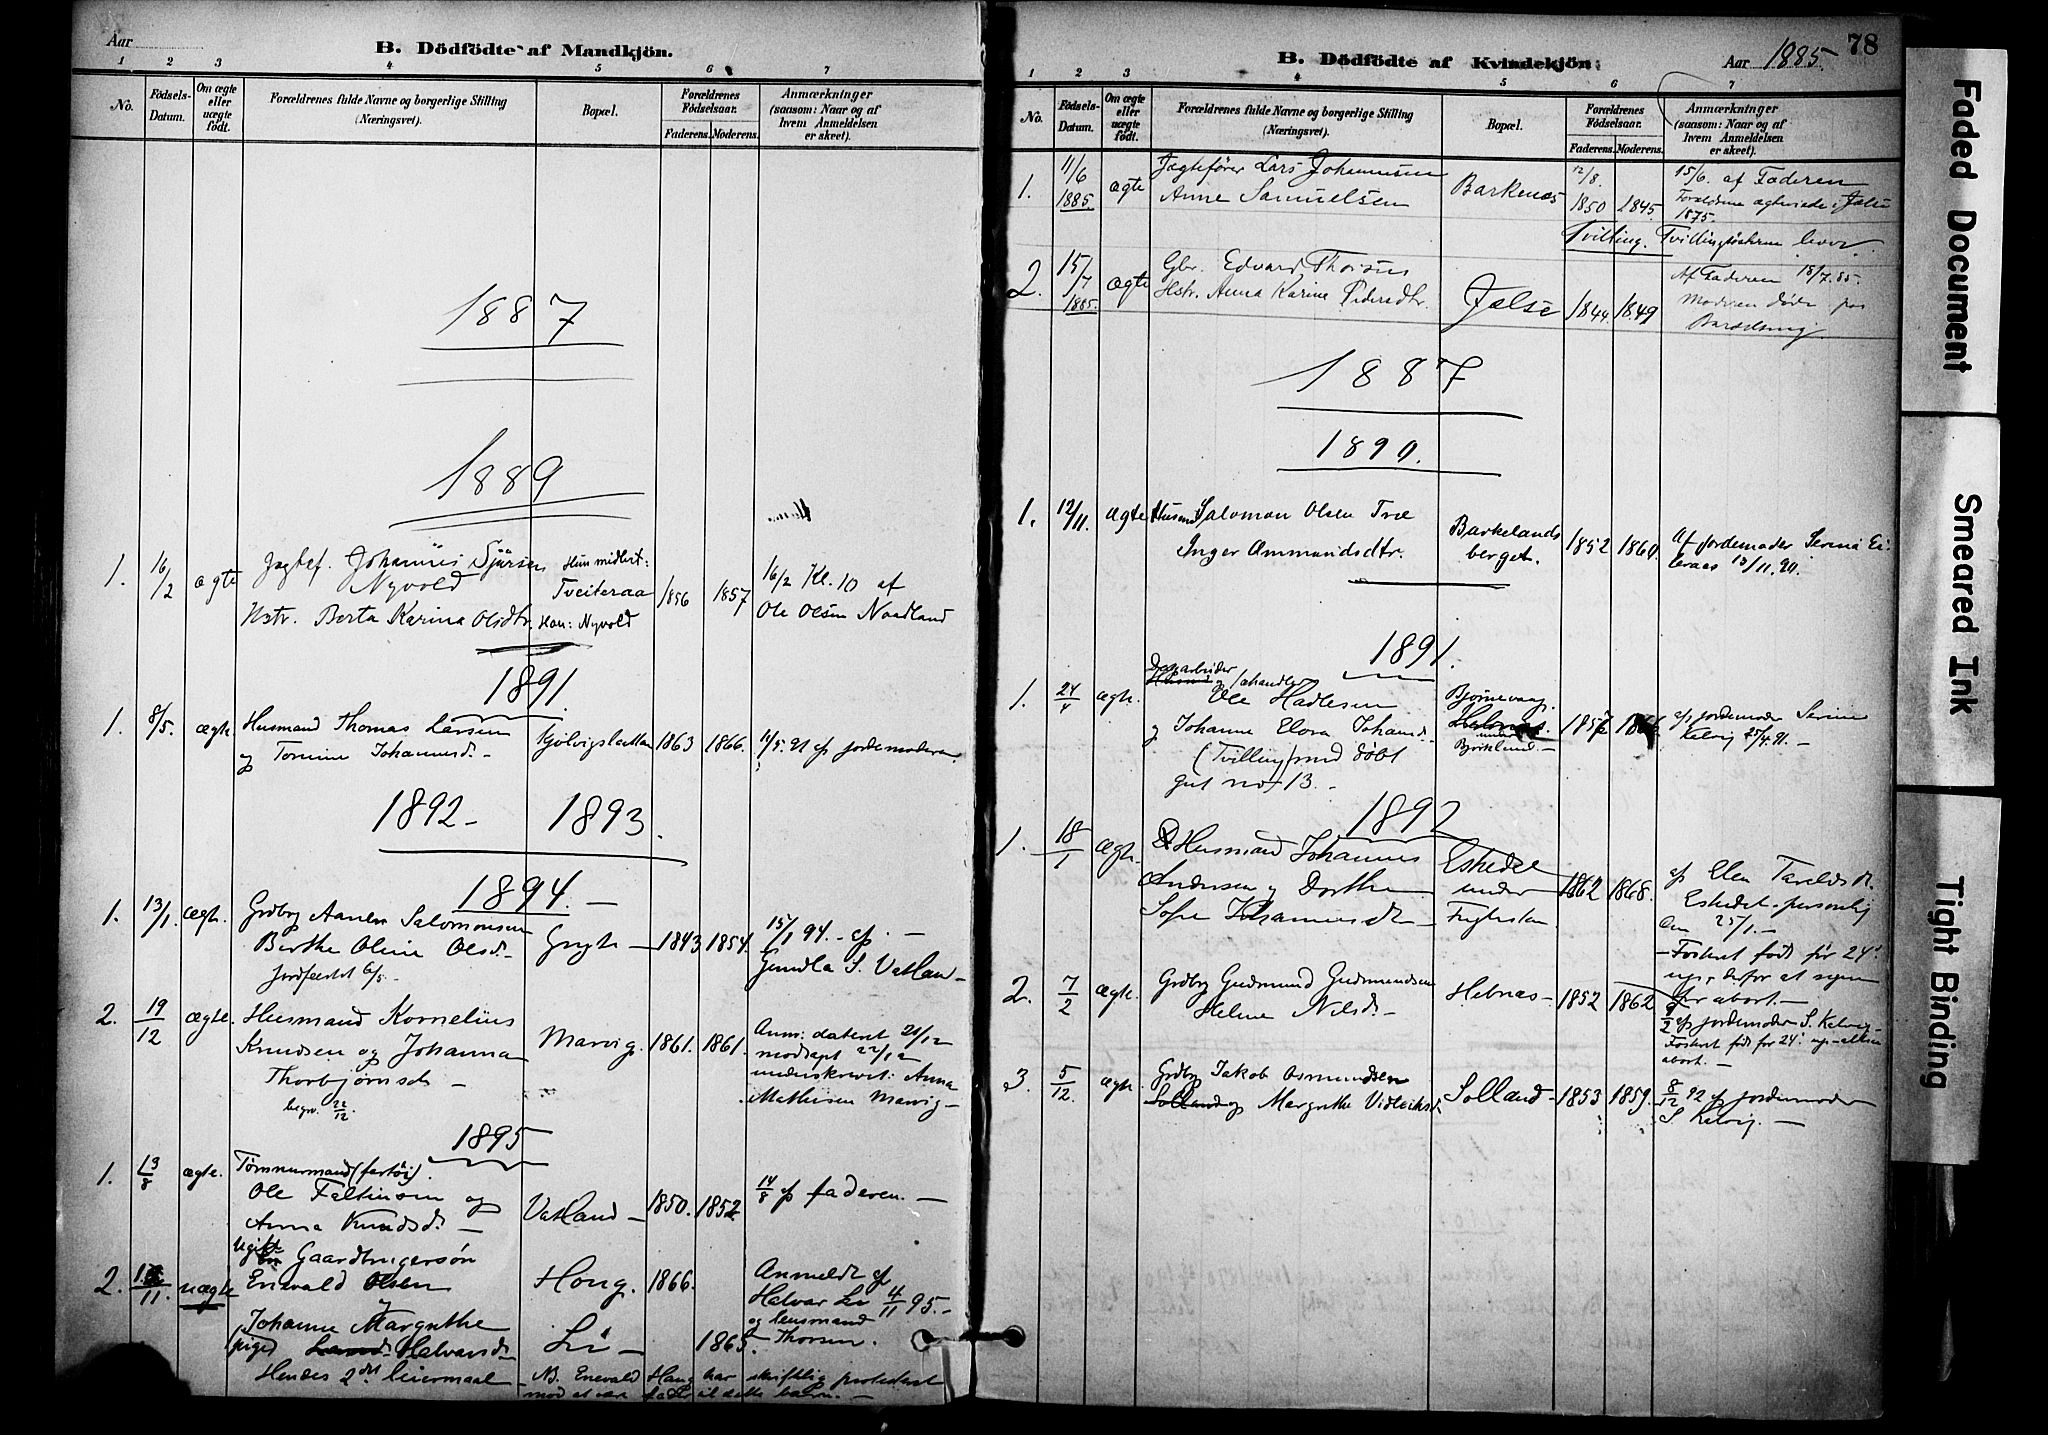 Aar
B. Dödfödte af Mandkjön.
1 2 3 4 5 6 7
No.
Födsels-
Datum.
Om ægte
eller
uægte
födt.
Forældrenes fulde Navne og borgerlige Stilling
(Næringsvei).
Bopæl.
Forældrenes
Födselsaar.
Faderens. Moderens.
Anmærkninger
(saasom: Naar og af
hvem Anmeldelsen
er skeet).
1887
1889
1. 16/2 ægte
Jagtef. Johannes Sjursen
Nyvold
Hstr. Berta Karina Olsdtr.
Hun midlert:
Tveiteraa
Han: Nyvold
1856 1857
16/2 Kl. 10 af
Ole Olsen Nordland
1891.
1. 8/5. ægte
Husmand Thomas Larsen
og Tomine Johannesd.
1863 1866.
11/5. 91 af jordemoderen
1892 - 1893.
1894. -
1. 13/1. ægte.
Grdbr Aanen Salomonsen
Berthe Oline Olsd. -
jordfæstet 6/5. -
1843 1854.
15/1 94. - af -
Gundla S. Vatland -
2. 19/12 ægte.
Husmand Kornelius
Knudsen og Johanna
Thorbjørnsd. -
begr. 22/12
Marvig.
1861. 1861.
Anm: dateret 21/12
modtaget 22/12
underskrevet: Anna
Mathisen Marvig -
1895
1. 13/8 ægte.
Tømmermand (fartøi).
Ole Faltinsen og
Anna Knudsd. -
Vatland -
1850. 1852
14/8 af faderen. -
2. 11. uægte
Ugift Gaardbrugersøn
Enevald Olsen
og
Johanne Margrethe
(pige) Halvarsd. -
Hendes 2det leiermaal
Houg.
Li -
1866.
1865.
Anmeldt af
Halvar Li 4/11 95. -
og lensmand
Thorsen.
N.B. Enevald Haug har skriftlig protesteret
mod at være fader til dette barn. -
B. Dödfödte af Kvindekjön.
Aar 1885.
78
1 2 3 4 5 6 7
No.
Födsels-
Datum.
Om ægte
eller
uægte
födt.
Forældrenes fulde Navne og borgerlige Stilling
(Næringsvei).
Bopæl.
Forældrenes
Födselsaar.
Faderens. Moderens.
Anmærkninger
(saasom: Naar og af
hvem Anmeldelsen
er skeet).
1. 11/6 1885. ægte
Jagtefører Lars Johannesen
Anne Samuelsen
Barkenæs
12/8. 1850 1845
15/6. af Faderen
Forældrene ægteviede i Jælse
1875.
Tvilling. Tvillingsøsteren lever.
2. 15/7 1885. ægte
Gbr. Edvard Thoisen
Hstr. Anna Karine Pedersdtr.
Jælse
1844. 1849
Af Faderen 18/7.85.
Moderen døde paa
Barselseng.
1887
1890.
1. 12/11. ægte
Husmd Salomon Olsen Træ
Inger Ammundsdtr.
Barkelands
berget.
1852 1860.
Af jordemoder Serina Ei-
leraas 13/11.90.
1891.
1. 24/ ægte.
Dagarbeider
og /æhandler
Ole Hadlesen
og Johanne Elora Johansd.
(Tvilling) med døbt
gut no 13. -
Bjørnevang.
under
Bjorkelund. -
af jordemoder Serine
Kelvig 25/4.91. -
1892
1. 18/1 ægte.
Husmand Johannes
Andersen og Dorthe
Sofie Johannesd. -
Eskedal
under
1862 1868.
af Elen Taraldsd.
Eskedal personlig
den 25/1. -
- Fosteret født før 24de
uge, derfor at regne
for abort. -
2. 7/2 ægte.
Grdbr Gudmund Gudmundsen
Helene Nilsd. -
Hebnæs -
1852 1862
9/2 af jordemoder S. Kelvig -
Fosteret født før 24. uge - altsaa
abort. -
3. 5/12. ægte.
Grdbr Jakob Osmundsen
Solland og Margrethe Vidleiksd.
Solland -
1853 1859.
8/12 92 af jordemoder
S. Kelvig. -
Faded Document
Smeared Ink
Tight Binding